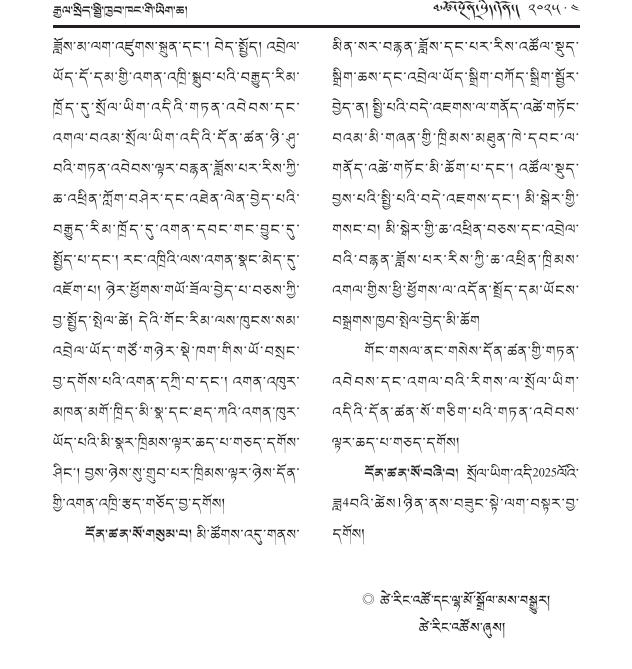 རྒྱལ་སྲིད་སྤྱི་ཁྱབ་ཁང་གི་ཡིག་ཆ།
༢༠༢༥.༤
ཟློས་མ་ལག་འཛུགས་སྐྲུན་དང་། བེད་སྤྱོད། འབྲེལ་
ཡོད་དོ་དམ་གྱི་འགན་འཁྲི་སྒྲུབ་པའི་བརྒྱུད་རིམ་
ཁྲོད་དུ་སྲོལ་ཡིག་འདིའི་གཏན་འབེབས་དང་
འགལ་བའམ་སྲོལ་ཡིག་འདིའི་དོན་ཚན་ཉི་ཤུ་
བའི་གཏན་འབེབས་ལྟར་བརྙན་ཟློས་པར་རིས་ཀྱི་
ཆ་འཕྲིན་ཀློག་བཤེར་དང་འཐེན་ལེན་བྱེད་པའི་
བརྒྱུད་རིམ་ཁྲོད་དུ་འགན་དབང་གང་བྱུང་དུ་
སྤྱོད་པ་དང་། རང་འཁྲིའི་ལས་འགན་སྣང་མེད་དུ་
འཇོག་པ། ཉེར་ཕྱོགས་གཡོ་ཟོལ་བྱེད་པ་བཅས་ཀྱི་
བྱ་སྤྱོད་སྤེལ་ཚེ། དེའི་གོང་རིམ་ལས་ཁུངས་སམ་
འབྲེལ་ཡོད་གཙོ་གཉེར་སྡེ་ཁག་གིས་ཡོ་བསྲང་
བྱ་དགོས་པའི་འགན་དཀྲི་བ་དང་། འགན་འཁུར་
མཁན་མགོ་ཁྲིད་མི་སྣ་དང་ཐད་ཀའི་འགན་ཁུར་
ཡོད་པའི་མི་སྣར་ཁྲིམས་ལྟར་ཆད་པ་གཅད་དགོས་
ཤིང་། བྱས་ཉེས་སུ་གྲུབ་པར་ཁྲིམས་ལྟར་ཉེས་དོན་
གྱི་འགན་འཁྲི་རྩད་གཅོད་བྱ་དགོས།
དོན་ཚན་སོ་གསུམ་པ། མི་ཚོགས་འདུ་གནས་
མིན་སར་བརྙན་ཟློས་དང་པར་རིས་འཚོལ་སྡུད་
སྒྲིག་ཆས་དང་འབྲེལ་ཡོད་སྒྲིག་བཀོད་སྒྲིག་སྦྱོར་
བྱེད་ན། སྤྱི་པའི་བདེ་འཇགས་ལ་གནོད་འཚེ་གཏོང་
བའམ་མི་གཞན་གྱི་ཁྲིམས་མཐུན་ཁེ་དབང་ལ་
གནོད་འཚེ་གཏོང་མི་ཆོག་པ་དང་། འཚོལ་སྡུད་
བྱས་པའི་སྤྱི་པའི་བདེ་འཇགས་དང་། མི་སྒེར་གྱི་
གསང་བ། མི་སྒེར་གྱི་ཆ་འཕྲིན་བཅས་དང་འབྲེལ་
བའི་བརྙན་ཟློས་པར་རིས་ཀྱི་ཆ་འཕྲིན་ཁྲིམས་
འགལ་གྱིས་ཕྱི་ཕྱོགས་ལ་འདོན་སྤྲོད་དམ་ཡོངས་
བསྒྲགས་ཁྱབ་སྤེལ་བྱེད་མི་ཆོག
གོང་གསལ་ནང་གསེས་དོན་ཚན་གྱི་གཏན་
འབེབས་དང་འགལ་བའི་རིགས་ལ་སྲོལ་ཡིག་
འདིའི་དོན་ཚན་སོ་གཅིག་པའི་གཏན་འབེབས་
ལྟར་ཆད་པ་གཅད་དགོས།
དོན་ཚན་སོ་བཞི་བ། སྲོལ་ཡིག་འདི2025ལོའི་
ཟླ4བའི་ཚེས1ཉིན་ནས་བཟུང་སྟེ་ལག་བསྟར་བྱ་
དགོས།
◎ ཚེ་རིང་འཚོ་དང་ལྷ་མོ་སྒྲོལ་མས་བསྒྱུར།
ཚེ་རིང་འཚོས་ཞུས།